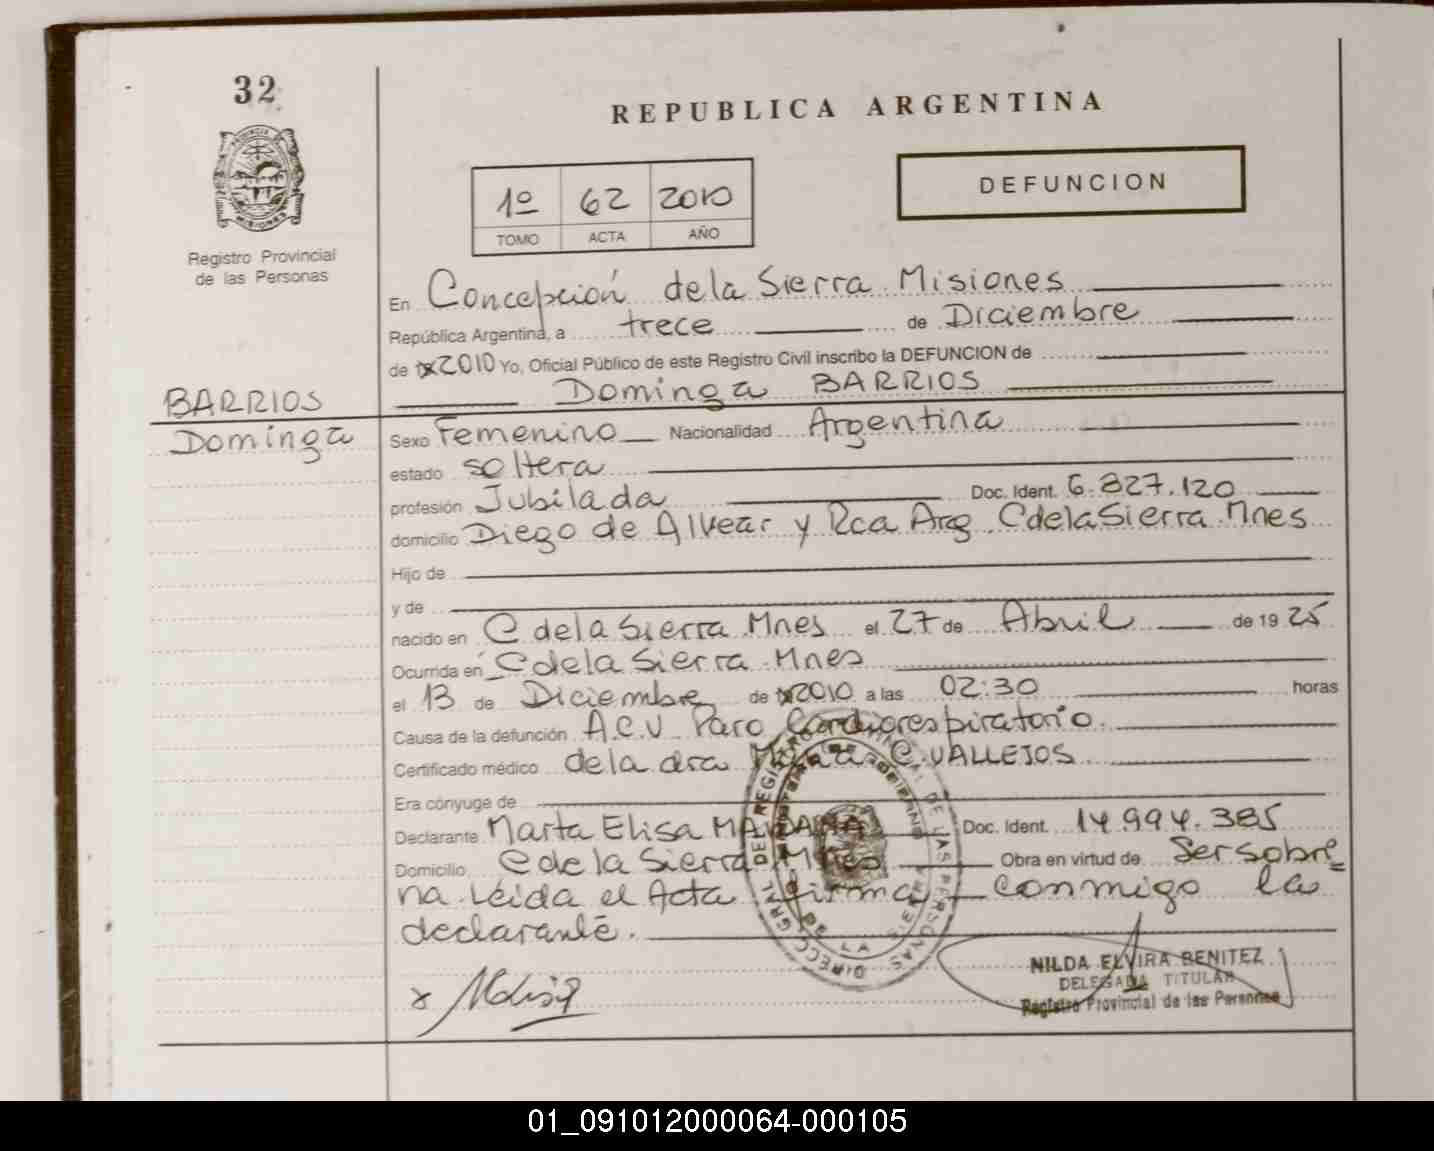 32
REPUBLICA ARGENTINA
PROVINCIA
MISIONES
Registro Provincial
de las Personas
1º 62 2010
TOMO ACTA AÑO
DEFUNCION
En Concepción de la Sierra Misiones
República Argentina, a trece de Diciembre
de 2010 Yo, Oficial Público de este Registro Civil inscribo la DEFUNCION de
Dominga BARRIOS
BARRIOS
Dominga
Sexo Femenino Nacionalidad Argentina
estado soltera
profesión Jubilada Doc. Ident. 6.827.120
domicilio Diego de Alvear y Rca Arg. C de la Sierra Mnes
Hijo de
y de
nacido en C de la Sierra Mnes el 27 de Abril de 19 25
Ocurrida en C de la Sierra Mnes
el 13 de Diciembre de 2010 a las 02:30 horas
Causa de la defunción A.C.V Paro Cardiorespiratorio
Certificado médico de la dra C. VALLEJOS
Era cónyuge de
Declarante Marta Elisa Doc. Ident. 14.994.385
Domicilio C de la Sierra Mnes Obra en virtud de Ser sobri=
na Leida el Acta firma conmigo la
declarante.
NILDA ELVIRA BENITEZ
DELEGADA TITULAR
Registro Provincial de las Personas
01_091012000064-000105